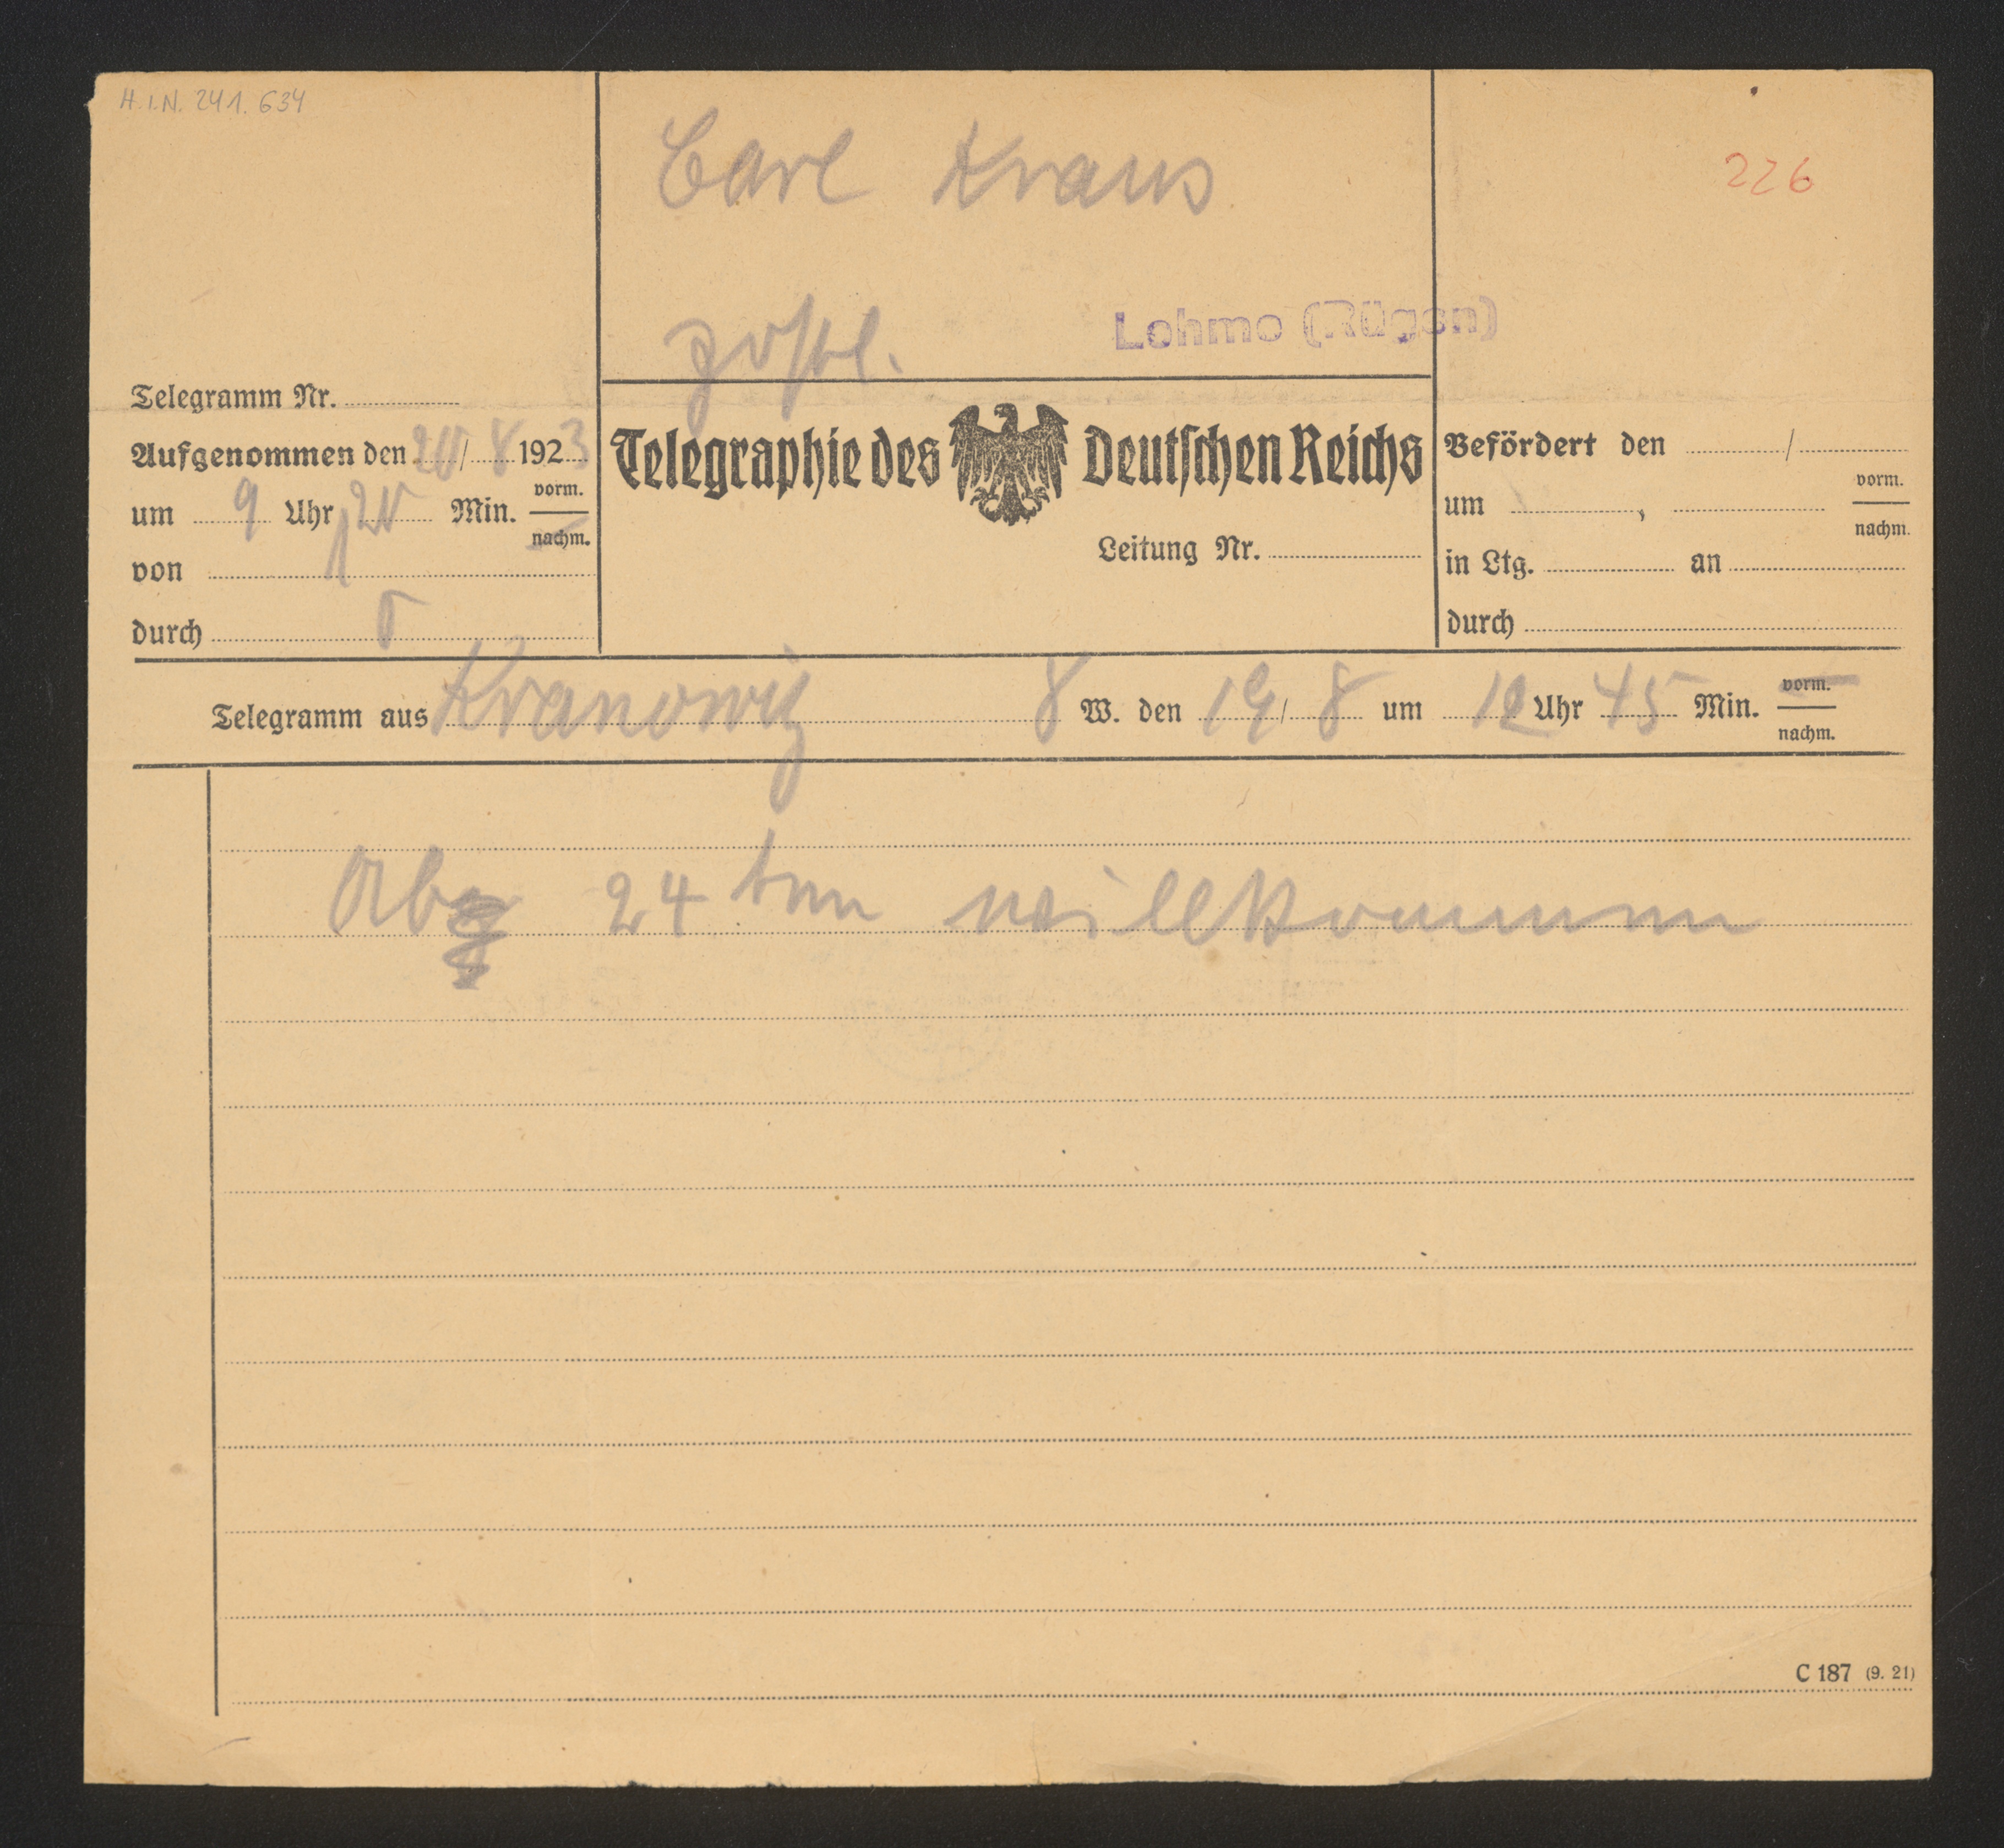 H.I.N. 241.634
Carl Kraus
226
postl.
Lohme (Rügen)
Telegramm Nr.
Aufgenommen den 20/8 1923
um 9 Uhr 20 Min. vorm.
nachm.
von
durch
Telegraphie des Deutschen Reichs
Leitung Nr.
Befördert den /
um , vorm.
nachm.
in Ltg. an
durch
Telegramm aus Kranowitz 8 W. den 19/8 um 12 Uhr 45 Min. vorm.
nachm.
Ab 24 ten willkommen
C 187 (9. 21)